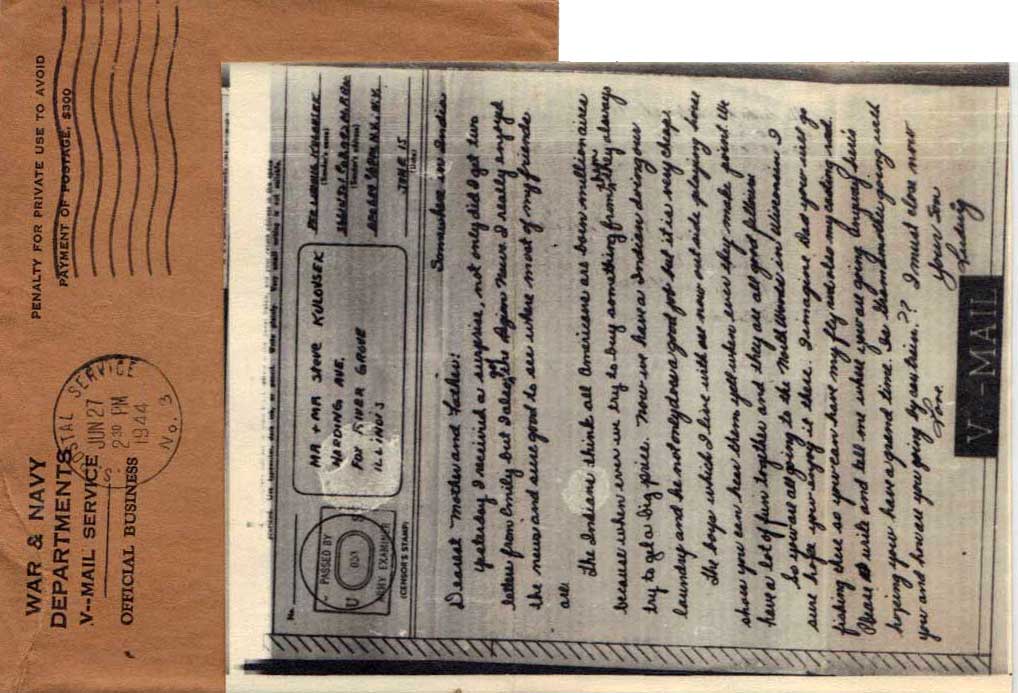 WAR & NAVY
DEPARTMENTS
V--MAIL SERVICE
OFFICIAL BUSINESS
POSTAL SERVICE
JUN 27
2 30 PM
1944
No. 3
PENALTY FOR PRIVATE USE TO AVOID
PAYMENT OF POSTAGE, $300
No.
PASSED BY
U S
ARMY EXAMINER
(CENSOR'S STAMP)
MR + MR STEVE KULOVSEK
HARDING AVE.
FOX RIVER GROVE
ILLINOIS
(Sender's name)
(Sender's address)
JUNE 15
(Date)
Somewhere in India
Dearest Mother and Father:
Yesterday I received a surprise, not only did I get two
letters from Emily but I also got the News I really enjoyed
the news and sure good to see where most of my friends
are.
The Indians think all Americans are born millionaires
because when ever we try to buy something from them they always
try to get a big price. Now we have a Indian doing our
laundry and he not only does a good job but it is very cheap.
The boys which I live with are now out side playing horse
shoes you can hear them yell when ever they make point We
have a lot of fun together and they are all good fellows.
So you are all going to the North Woods in Wisconsin I
sure hope you enjoy it there. I imagine Dad you will go
fishing there so you can have my fly and also my casting rod.
Please write and tell me when you are going. Anyway here is
hoping you have a grand time. Is Gram going with
you and how are you going by car train.?? I must close now
Love.
Your Son
Ludwig
V--MAIL